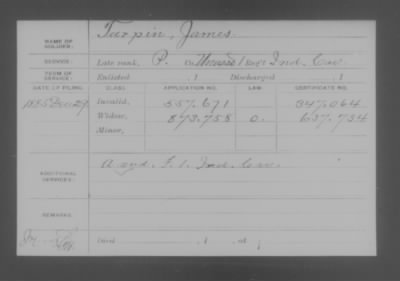 NAME OF SOLDIER: Tarpin, James.
SERVICE: Late rank, P. Co. 1 Regt Ind. Cav.
TERM OF SERVICE: Enlisted , 1 Discharged , 1
DATE OF FILING. CLASS. APPLICATION NO. LAW. CERTIFICATE NO.
1885 Dec 29 Invalid, 557.671 347.064
Widow, 873.758 O. 637.734
Minor,
ADDITIONAL SERVICES: A and F. 1. Ind. Cav.
REMARKS:
Died , 1 , at